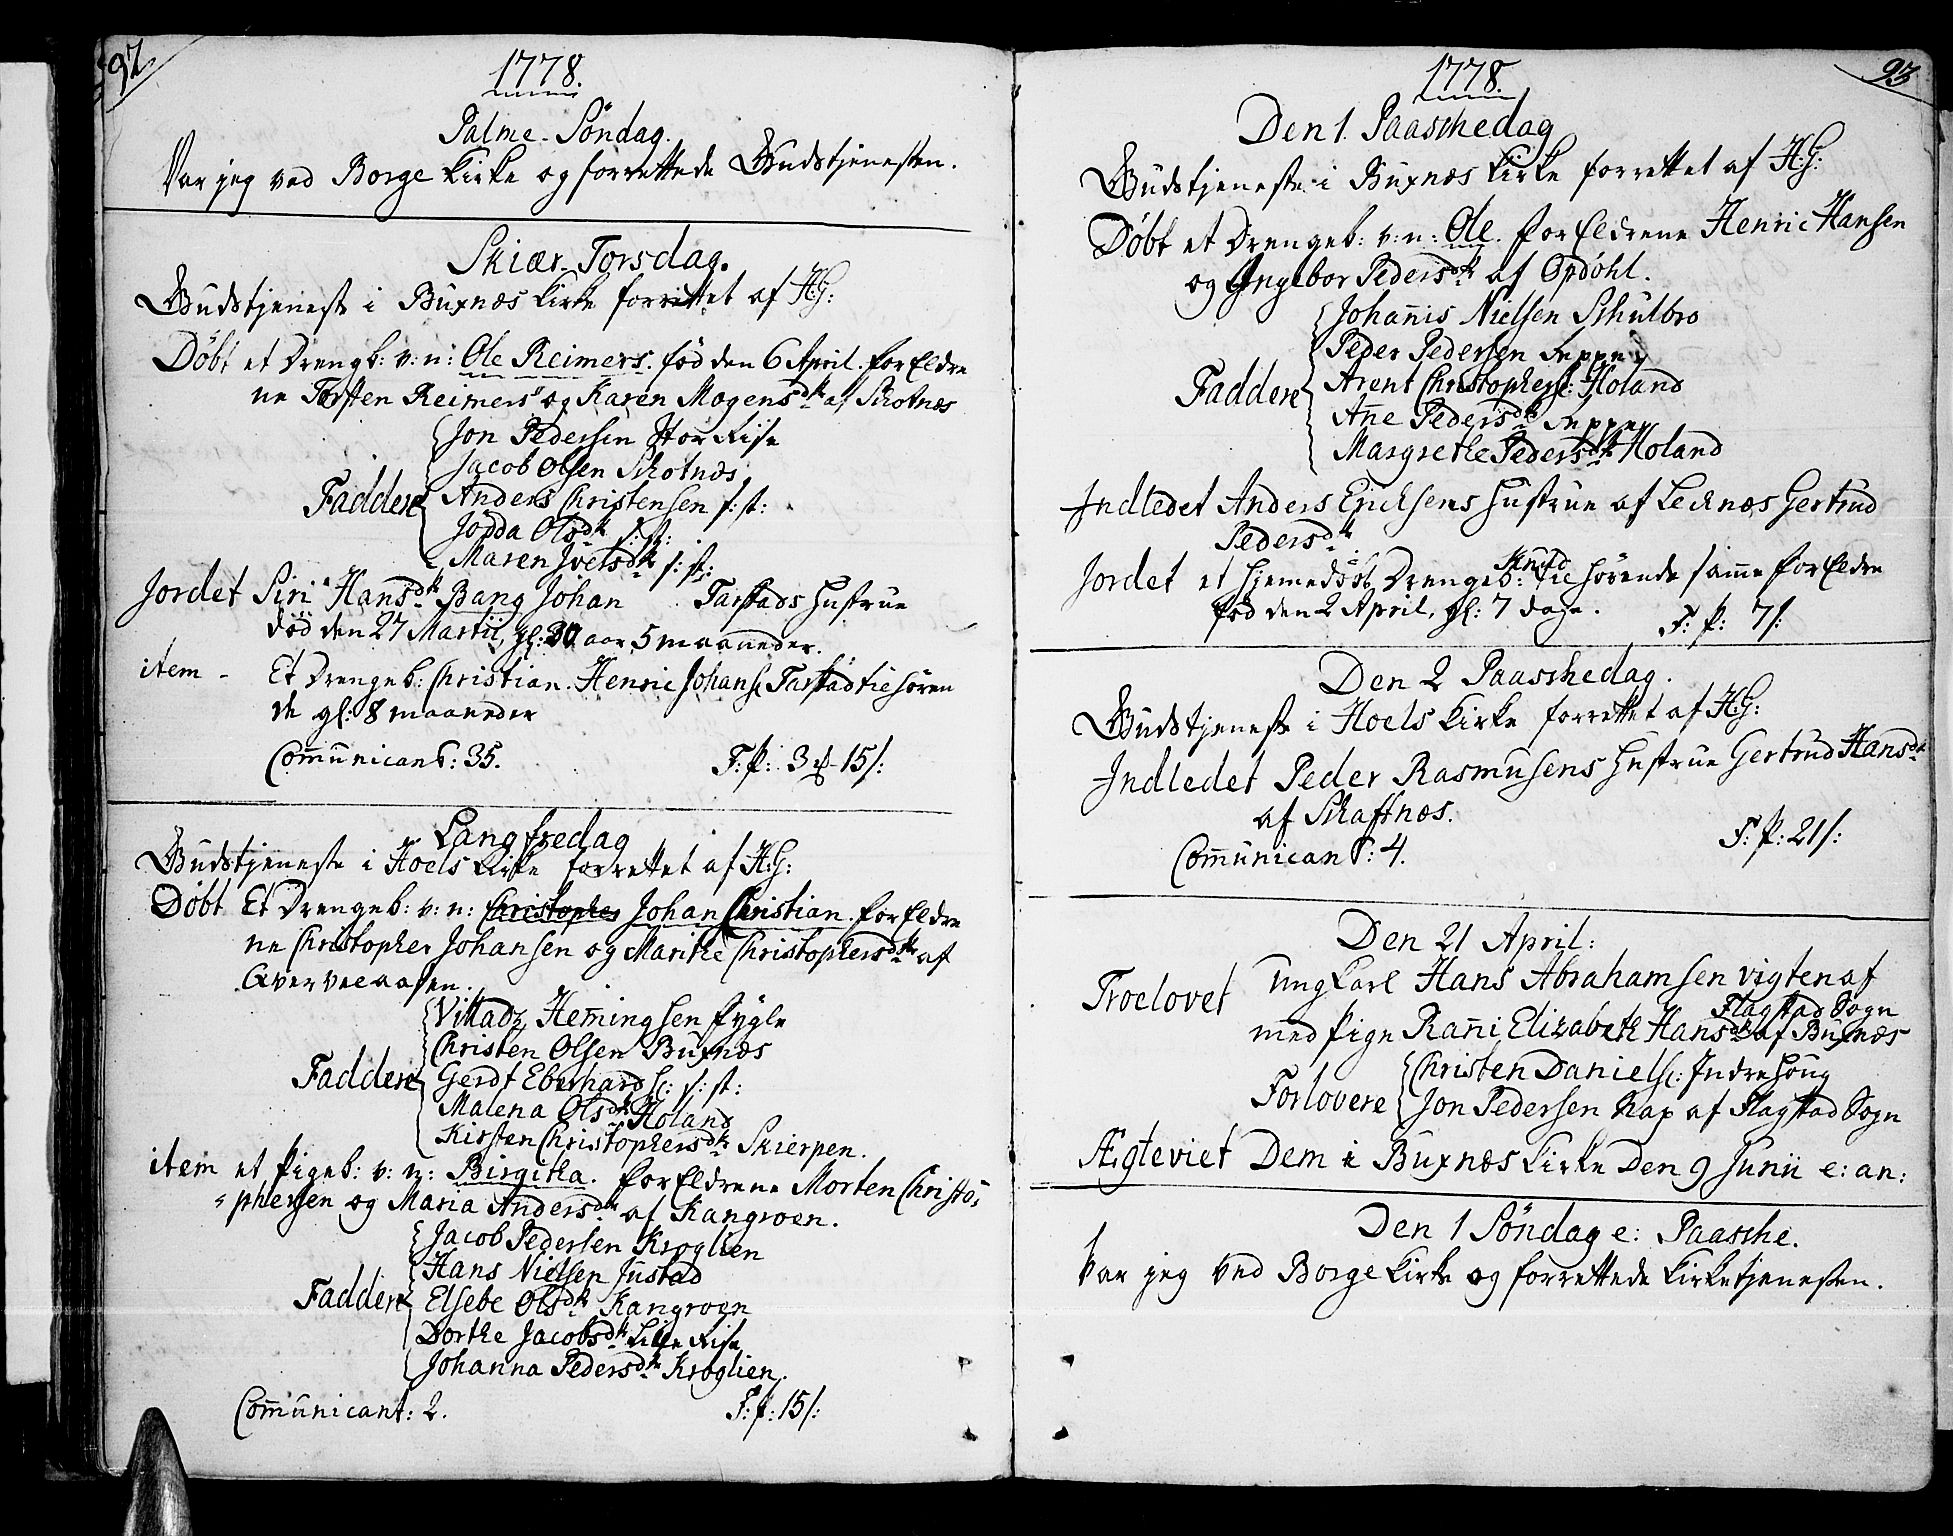 92
1778.
Palme-Søndag.
Var jeg ved Borge Kirke og forrettede Gudstjenesten.
Skiær-Torsdag.
Gudstjeneste i Buxnæs Kirke forrettet af H:G:
Døbt et Drengb: v: n: Ole Reimers. fød den 6 April. forEldre
ne Torsten Reimers og Karen Mogensdtr af Skotnæs
Jon Pedersen StorRise
Jacob Olsen Skotnæs
Faddere Anders Christensen s: st:
Jødda Olsdtr s: st:
Maren Ivelsdtr s: st:
Jordet Siri Hansdtr Bang Johan Tarstads Hustrue
død den 27 Martii, gl: 30 aar 5 maaneder.
item - Et Drengeb: Christian. Henric Johans: Tarstad tilhøren
de gl: 8 maaneder
Communicant: 35. T: P: 3 15/:
Langfredag
Gudstjeneste i Hoels Kirke forrettet af H:G:
Døbt Et Drengeb: v: n: Christopher Johan Christian. forEldre
ne Christopher Johansen og Marithe Christophersdtr af
Ververaasen.
Villadz Hemmingsen Pygle
Christen Olsen Buxnæs
Faddere Gerdt Eberhards: s: st:
Malena Olsdtr Holand
Kirsten Christophersdtr Skierpen.
item et Pigeb: v: n: Birgitha. forEldrene Morten Christo,
"phersen og Maria Andersdtr af Kangroen.
Jacob Pedersen Kroglien
Hans Nielsen Justad
Faddere Elsebe Olsdtr Kangroen
Dorthe Jacobsdtr Lille Rise
Johanna Pedersdtr Kroglien.
Communicant: 2. T: P: 15/:
93
1778.
Den 1. Paaschedag
Gudstjeneste i Buxnæs Kirke forrettet af H:G:
Døbt et Drengeb: v: n: Ole. forEldrene Henric Hansen
og Ingebor Pedersdtr af Opdøhl.
Johannis Nielsen Schulbro
Peder Pedersen Seppe
Faddere Arent Christophers: Holand
Anne Pedersdtr
Margrethe Pedersdtr Holand
Indledet Anders Ericksens Hustrue af Lecknæs Gertrud
Pedersdtr
Knud
Jordet et hjemedøbt Drengeb: tilhørende samme forEldre
fød den 2 April, gl: 7 dage. T: P: 7/:
Den 2 Paaschedag.
Gudstjeneste i Hoels Kirke forrettet af H:G:
Indledet Peder Rasmusens Hustrue Gertrud Hansdtr
af Skaftnæs.
Communicant: 4. T: P: 21/:
Den 21 April:
Troelovet Ung Karl Hans Abrahamsen Vigten af
Flagstad Sogn
med Pige Ranni Elizabeth Hansdtr af Buxnæs
Christen Daniels: Indrehøug
Forlovere Jon Pedersen Nap af Flagstad Sogn
Ægteviet Dem i Buxnæs Kirke Den 9 Junii e: an:
Den 1 Søndag e: Paasche.
Var jeg ved Borge Kirke og forrettede Kirketjenesten.